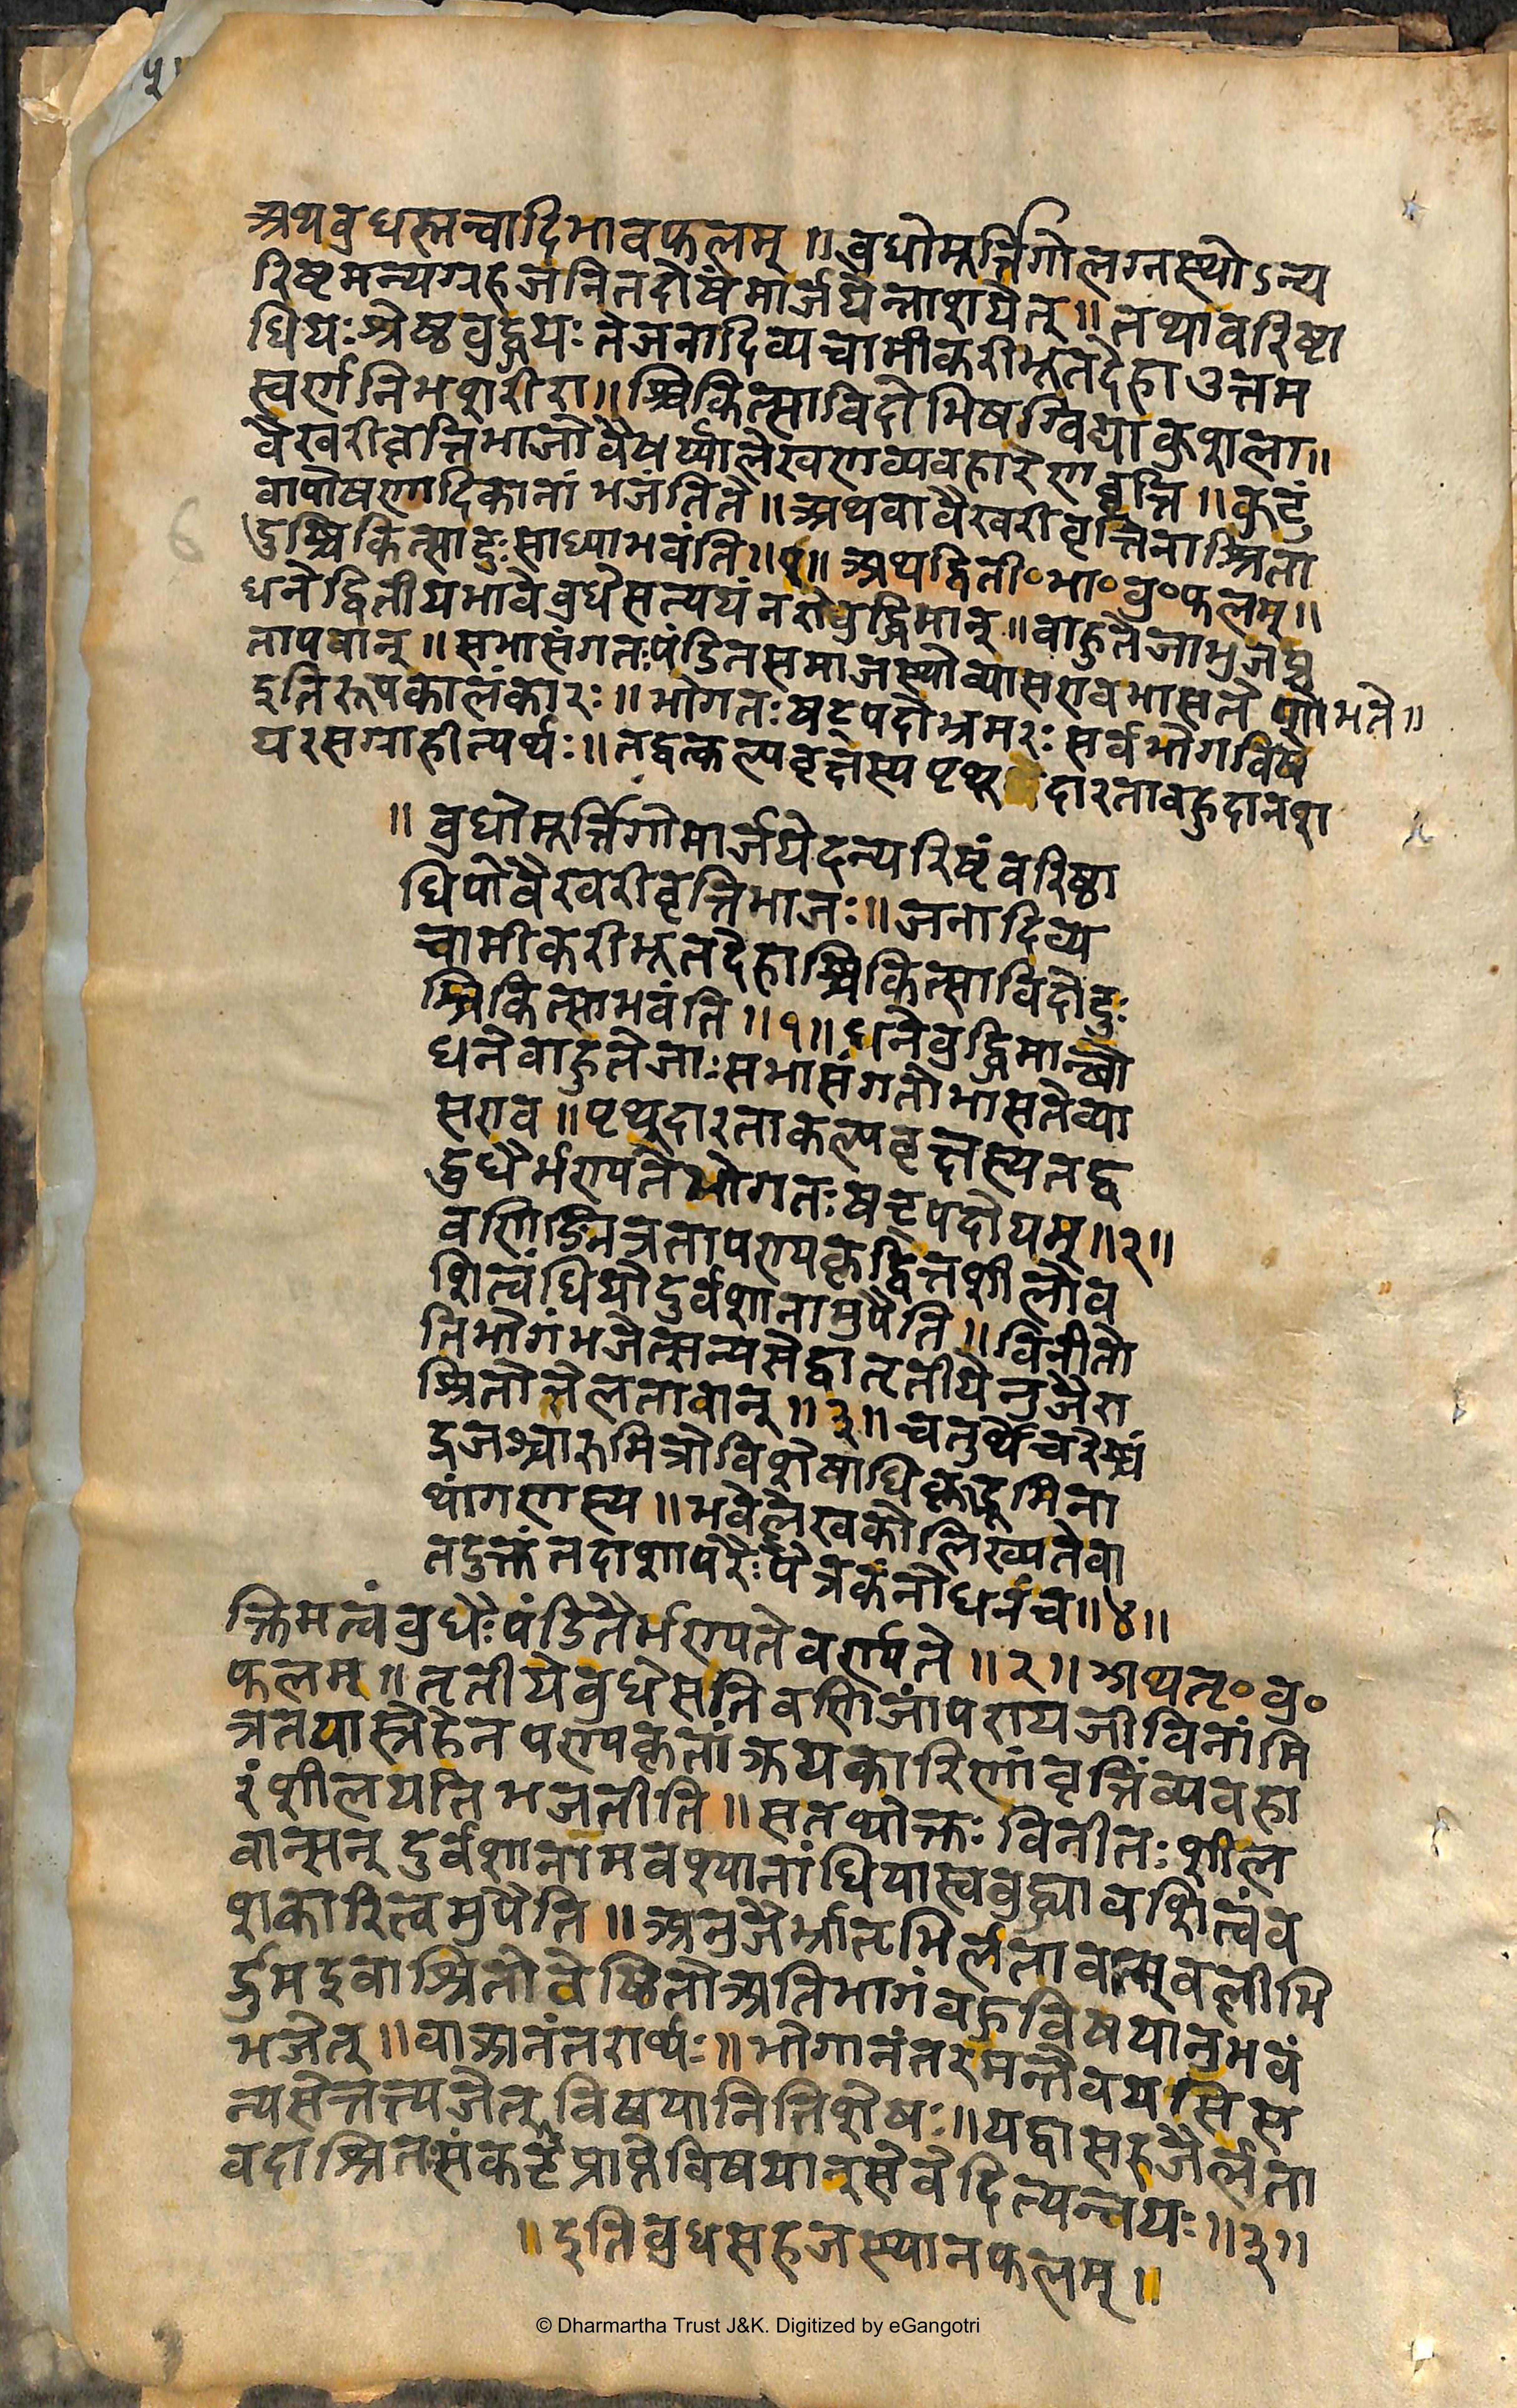 ५
अथबुधस्तन्वादिभावफलम् ॥ बुधोमूर्त्तिगोलग्नस्थोऽन्य
रिष्टमन्यग्रहजनितदोषंमार्जयेन्नाशयेत् ॥ तथावरिष्टा
धियःश्रेष्ठबुद्धयः तेजनादिव्यचामीकरीभूतदेहाउत्तम
स्वर्णनिभशरीरा ॥ श्चिकित्साविदोभिषग्विद्याकुशला ॥
वैखरीवृत्तिभाजो लेखणव्यवहारेणवृत्तिं ॥ कुटुं
वापोषणादिकानां भजंतिते ॥ अथवावैखरीवृत्तिनाश्रिता
दुश्चिकित्सादुःसाध्याभवंति ॥१॥ अथद्विती॰भा॰बु॰फलम् ॥
धनेद्वितीयभावेबुधेसत्ययंनरोबुद्धिमान् ॥ वाहुतेजाभुजप्र
तापवान् ॥ सभासंगतःपंडितसमाजस्थोव्यासएवभासते शोभते ॥
इतिरूपकालंकारः ॥ भोगतःषट्पदोभ्रमरः सर्वभोगविष
यरसग्राहीत्यर्थः ॥ तद्वत्कल्पवृक्षस्यपृथू दारतावहुदानश
॥ बुधोमूर्त्तिगोमार्जयेदन्यरिष्टंवरिष्ठा
धियोवैखरीवृत्तिभाजः ॥ जनादिव्य
चामीकरीभूतदेहाश्चिकित्साविदोदुः
श्चिकित्साभवंति ॥१॥ धनेबुद्धिमान्बो
धनेवाहुतेजाःसभासंगतोभासतेव्या
सएव ॥ पृथूदारताकल्पवृक्षस्यतद्व
द्बुधैर्भण्यतेभोगतःषट्पदोयम् ॥२॥
वणिङ्मित्रतापण्यकृद्वृत्तशीलोव
शित्वंधियोदुर्वशानामुपैति ॥ विनीतो
तिभोगंभजेत्सन्यसेद्वातृतीयेनुजैरा
श्रितोज्ञेलतावान् ॥३॥ चतुर्थेचरेच्चं
द्रजश्चारुमित्रोविशेषाधिकृद्भूमिना
थांगणस्य ॥ भवेल्लेखकोलिख्यतेवा
तदुक्तंतदाशापरैःपैत्रकंनोधनंच ॥४॥
क्तिमत्वंबुधैःपंडितैर्भण्यतेवर्ण्यते ॥२॥ अथतृ॰बु॰
फलम् ॥ तृतीयेबुधेसतिवणिजांपरायजीविनांमि
त्रतयास्नेहेनपण्यकृतांक्रयकारिणांवृत्तिंव्यवहा
रंशीलयतिभजतीति ॥ सतथोक्तः विनीतःशील
वान्सन् दुर्वशानामवश्यानांधियास्वबुद्ध्यावशित्वंव
शकारित्वमुपैति ॥ अनुजैर्भ्रातृभिर्लतावत्सुवल्लीभि
र्द्रुमइवाश्रितोवेष्ठितोअतिभोगंवहुविषयानुभवं
भजेत् ॥ वाअनंतरार्थः ॥ भोगानंतरमन्तेवयसिस
न्यसेत्तत्त्यजेत् विषयानितिशेषः ॥ यद्वासहजैर्लता
वदाश्रितःसंकटेप्राप्तेविषयान्सेवेदित्यन्वयः ॥३॥
॥ इतिबुधसहजस्थानफलम् ॥
6
© Dharmartha Trust J&K. Digitized by eGangotri